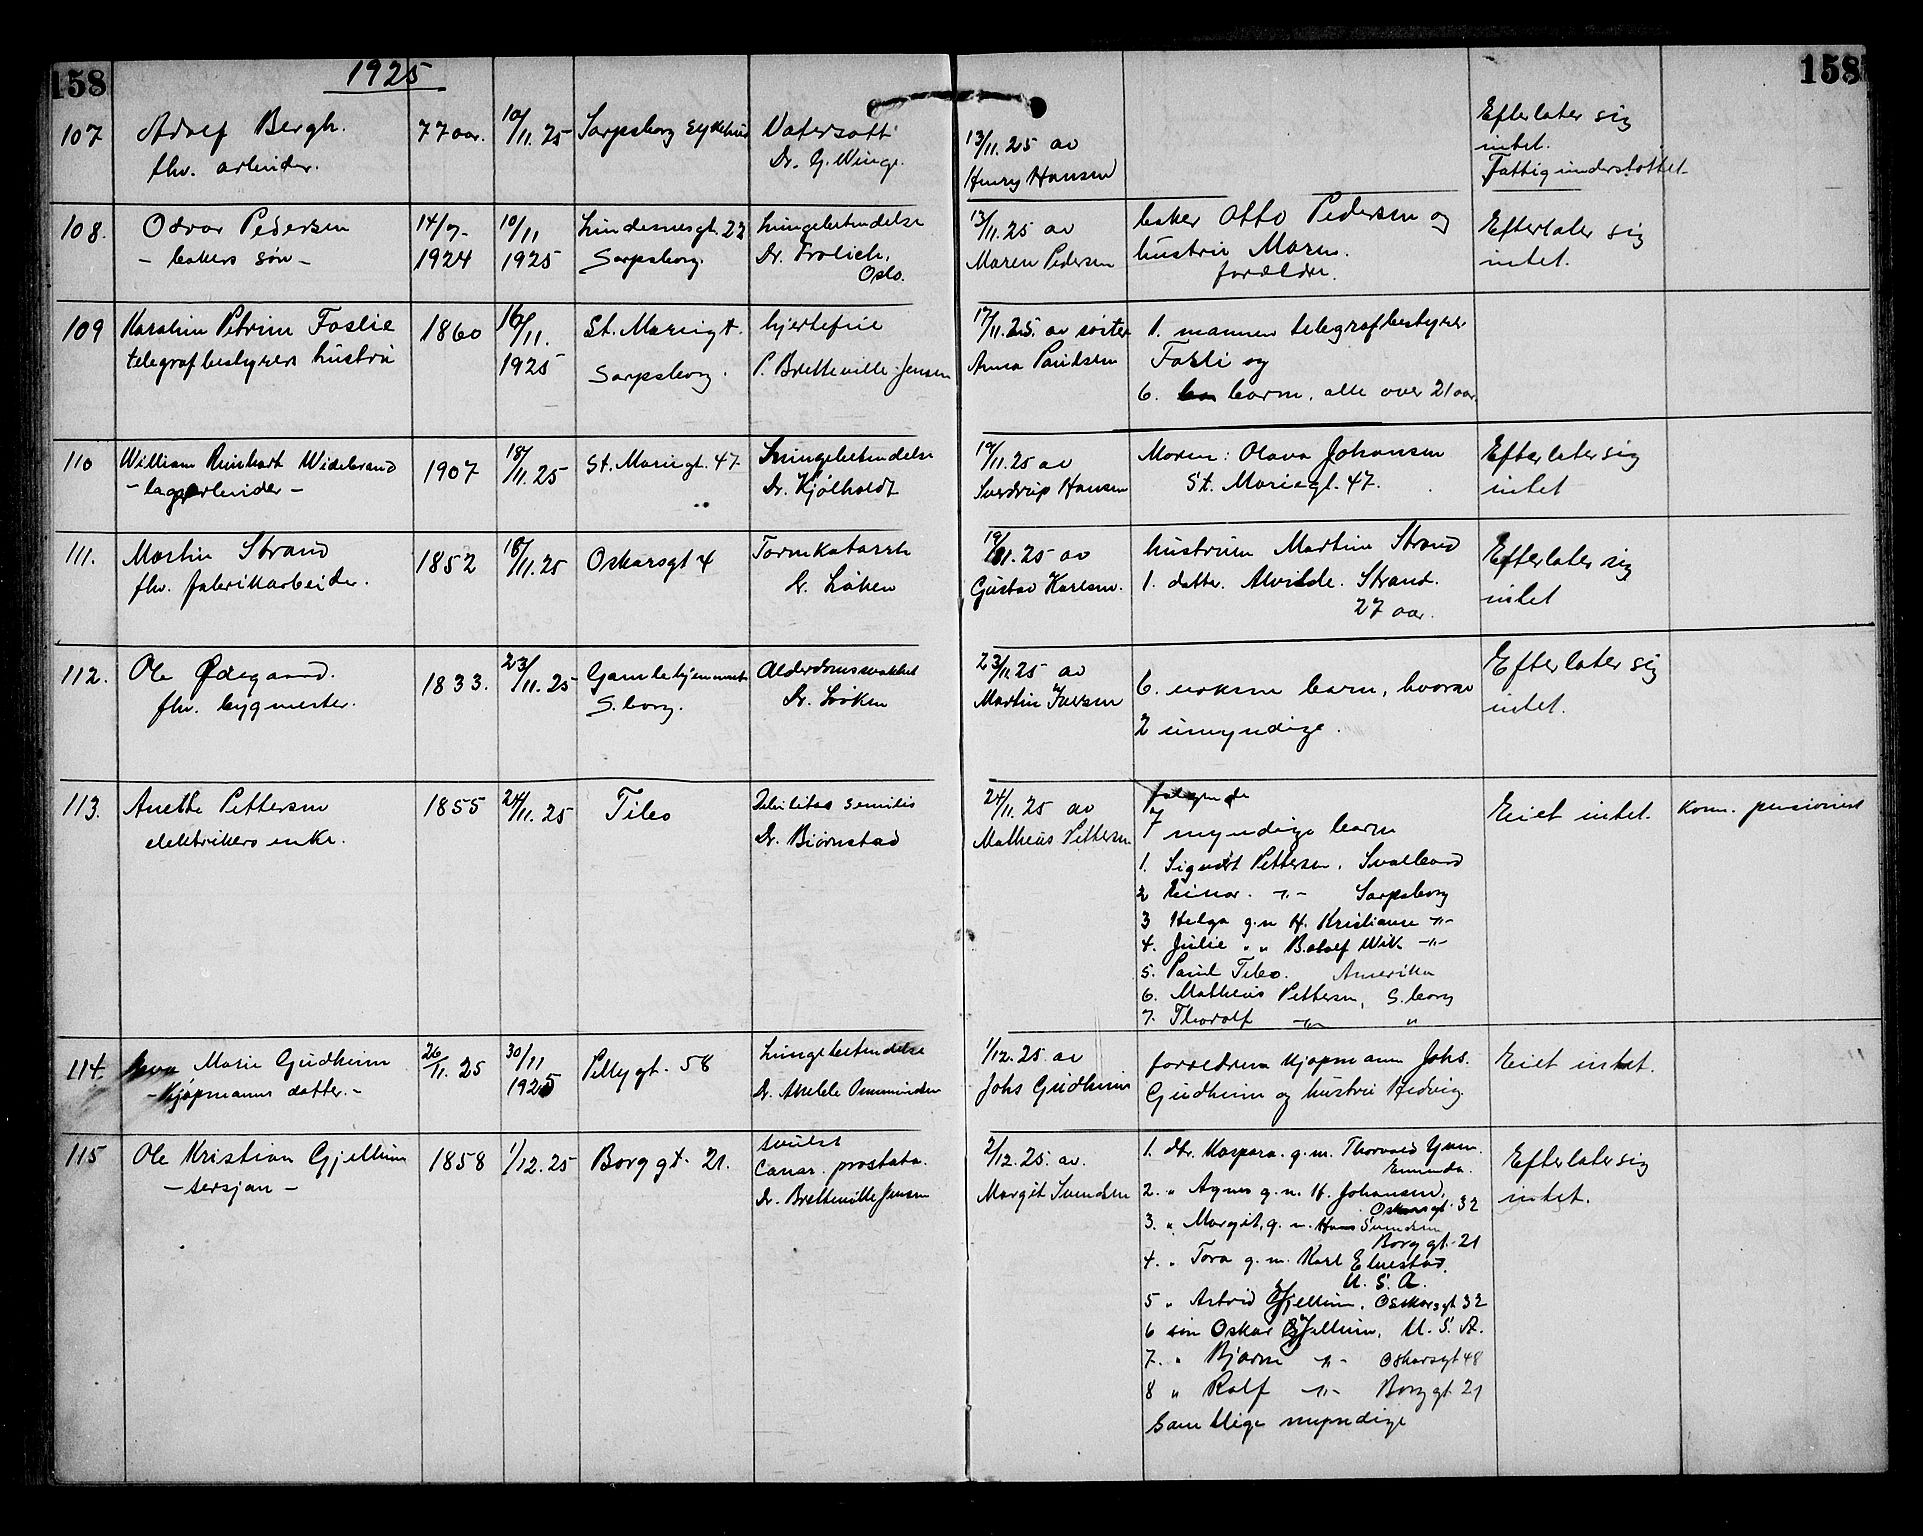 158
1925
158
107
Adolf Bergh.
fhv. arbeider.
77 aar.
10/11.25
Sarpsborg Sykehus
Vatersott
Dr. G. Winge.
13/11.25 av
Henry Hansen
Efterlater sig
intet.
Fattigunderstøttet
108.
Odvar Pedersen
- bakers søn -
14/7-
1924
10/11
1925
Lindesnesgt. 22
Sarpsborg.
Lungebetendelse
Dr. Frølich,
Oslo.
13/11.25 av
Maren Pedersen
baker Otto Pedersen og
hustru Maren.
forældre.
Efterlater sig
intet.
109
Karoline Petrine Foslie
telegrafbestyrers hustru
1860
16/11.
1925
St. Mariegt.
Sarpsborg.
hjertefeil
P. Bretteville-Jensen
17/11.25. av søster
Anna Paulsen
1. mannen telegrafbestyrer
Fosli og
6. barn, alle over 21 aar.
110
William Reinhart Widebrand
- lagerarbeider -
1907
18/11.25
St. Mariegt. 47
Lungebetendelse
Dr. Kjølholdt
19/11.25 av
Sverdrup Hansen
Moren: Olava Johansen
St. Mariegt. 47.
Efterlater sig
intet
111.
Martin Strand
fhv. fabrikkarbeider.
1852
18/11.25
Oskarsgt 4
Tarmkatarrh
Dr. Løken
19/11.25 av
Gustav Karlsen.
hustruen Martine Strand
1. datter. Alvilde. Strand.
27 aar.
Efterlater sig
intet
112.
Ole Ødegaard.
fhv. bygmester.
1833.
23/11.25
Gamlehjemmet
S.borg.
Alderdomssvakhet
Dr. Løken
23/11.25 av
Martin Iversen
6. voksne barn, hvorav
2 umyndige.
Efterlater sig
intet.
113.
Anette Pettersen
elektrikers enke.
1855
24/11.25
Tileo
Debilitas senilis
Dr. Bjørnstad
24/11.25 av
Matheus Pettersen
følgende
7 myndige barn
1. Sigurdt Pettersen, Svalbard
2 Einar. -"- Sarpsborg
3 Helga g.m H. Kristianse -"-
4. Julie " " B. Wik -"-
5. Paul Tileo. Amerika
6. Matheus Pettersen, S.borg
7. Thoralf -"- "
Eiet intet.
Kom. pensionist
114.
Marie Gudheim
- Kjøpmanns datter. -
26/11.25
30/11
1925
Pellygt. 58
Lungebetendelse
Dr.
1/12.25 av
Johs Gudheim
forældrene Kjøpmann Johs.
Gudheim og hustru Hedvig.
Eiet intet.
115
Ole Kristian Gjellum
- sersjan -
1858
1/12.25
Borggt. 21.
svulst
Cancr. prostata.
Dr. Bretteville Jensen
2/12.25. av.
Margit Svendsen
1. dtr. Kaspara. g.m. Thorvald
2. " Agnes g.m. H. Johansen,
Oskarsgt. 32
3. " Margit, g.m. Hans Svendsen
Borggt. 21
4. " Tora g.m. Karl Elnestad.
U.S.A.
5 " Astrid Gjellum, Oskarsgt. 32
6 søn Oskar Gjellum, U.S.A.
7. " Bjarne -"- Oskarsgt 48
8 " Rolf -"- Borggt. 21
samtlige myndige
Efterlater sig
intet.